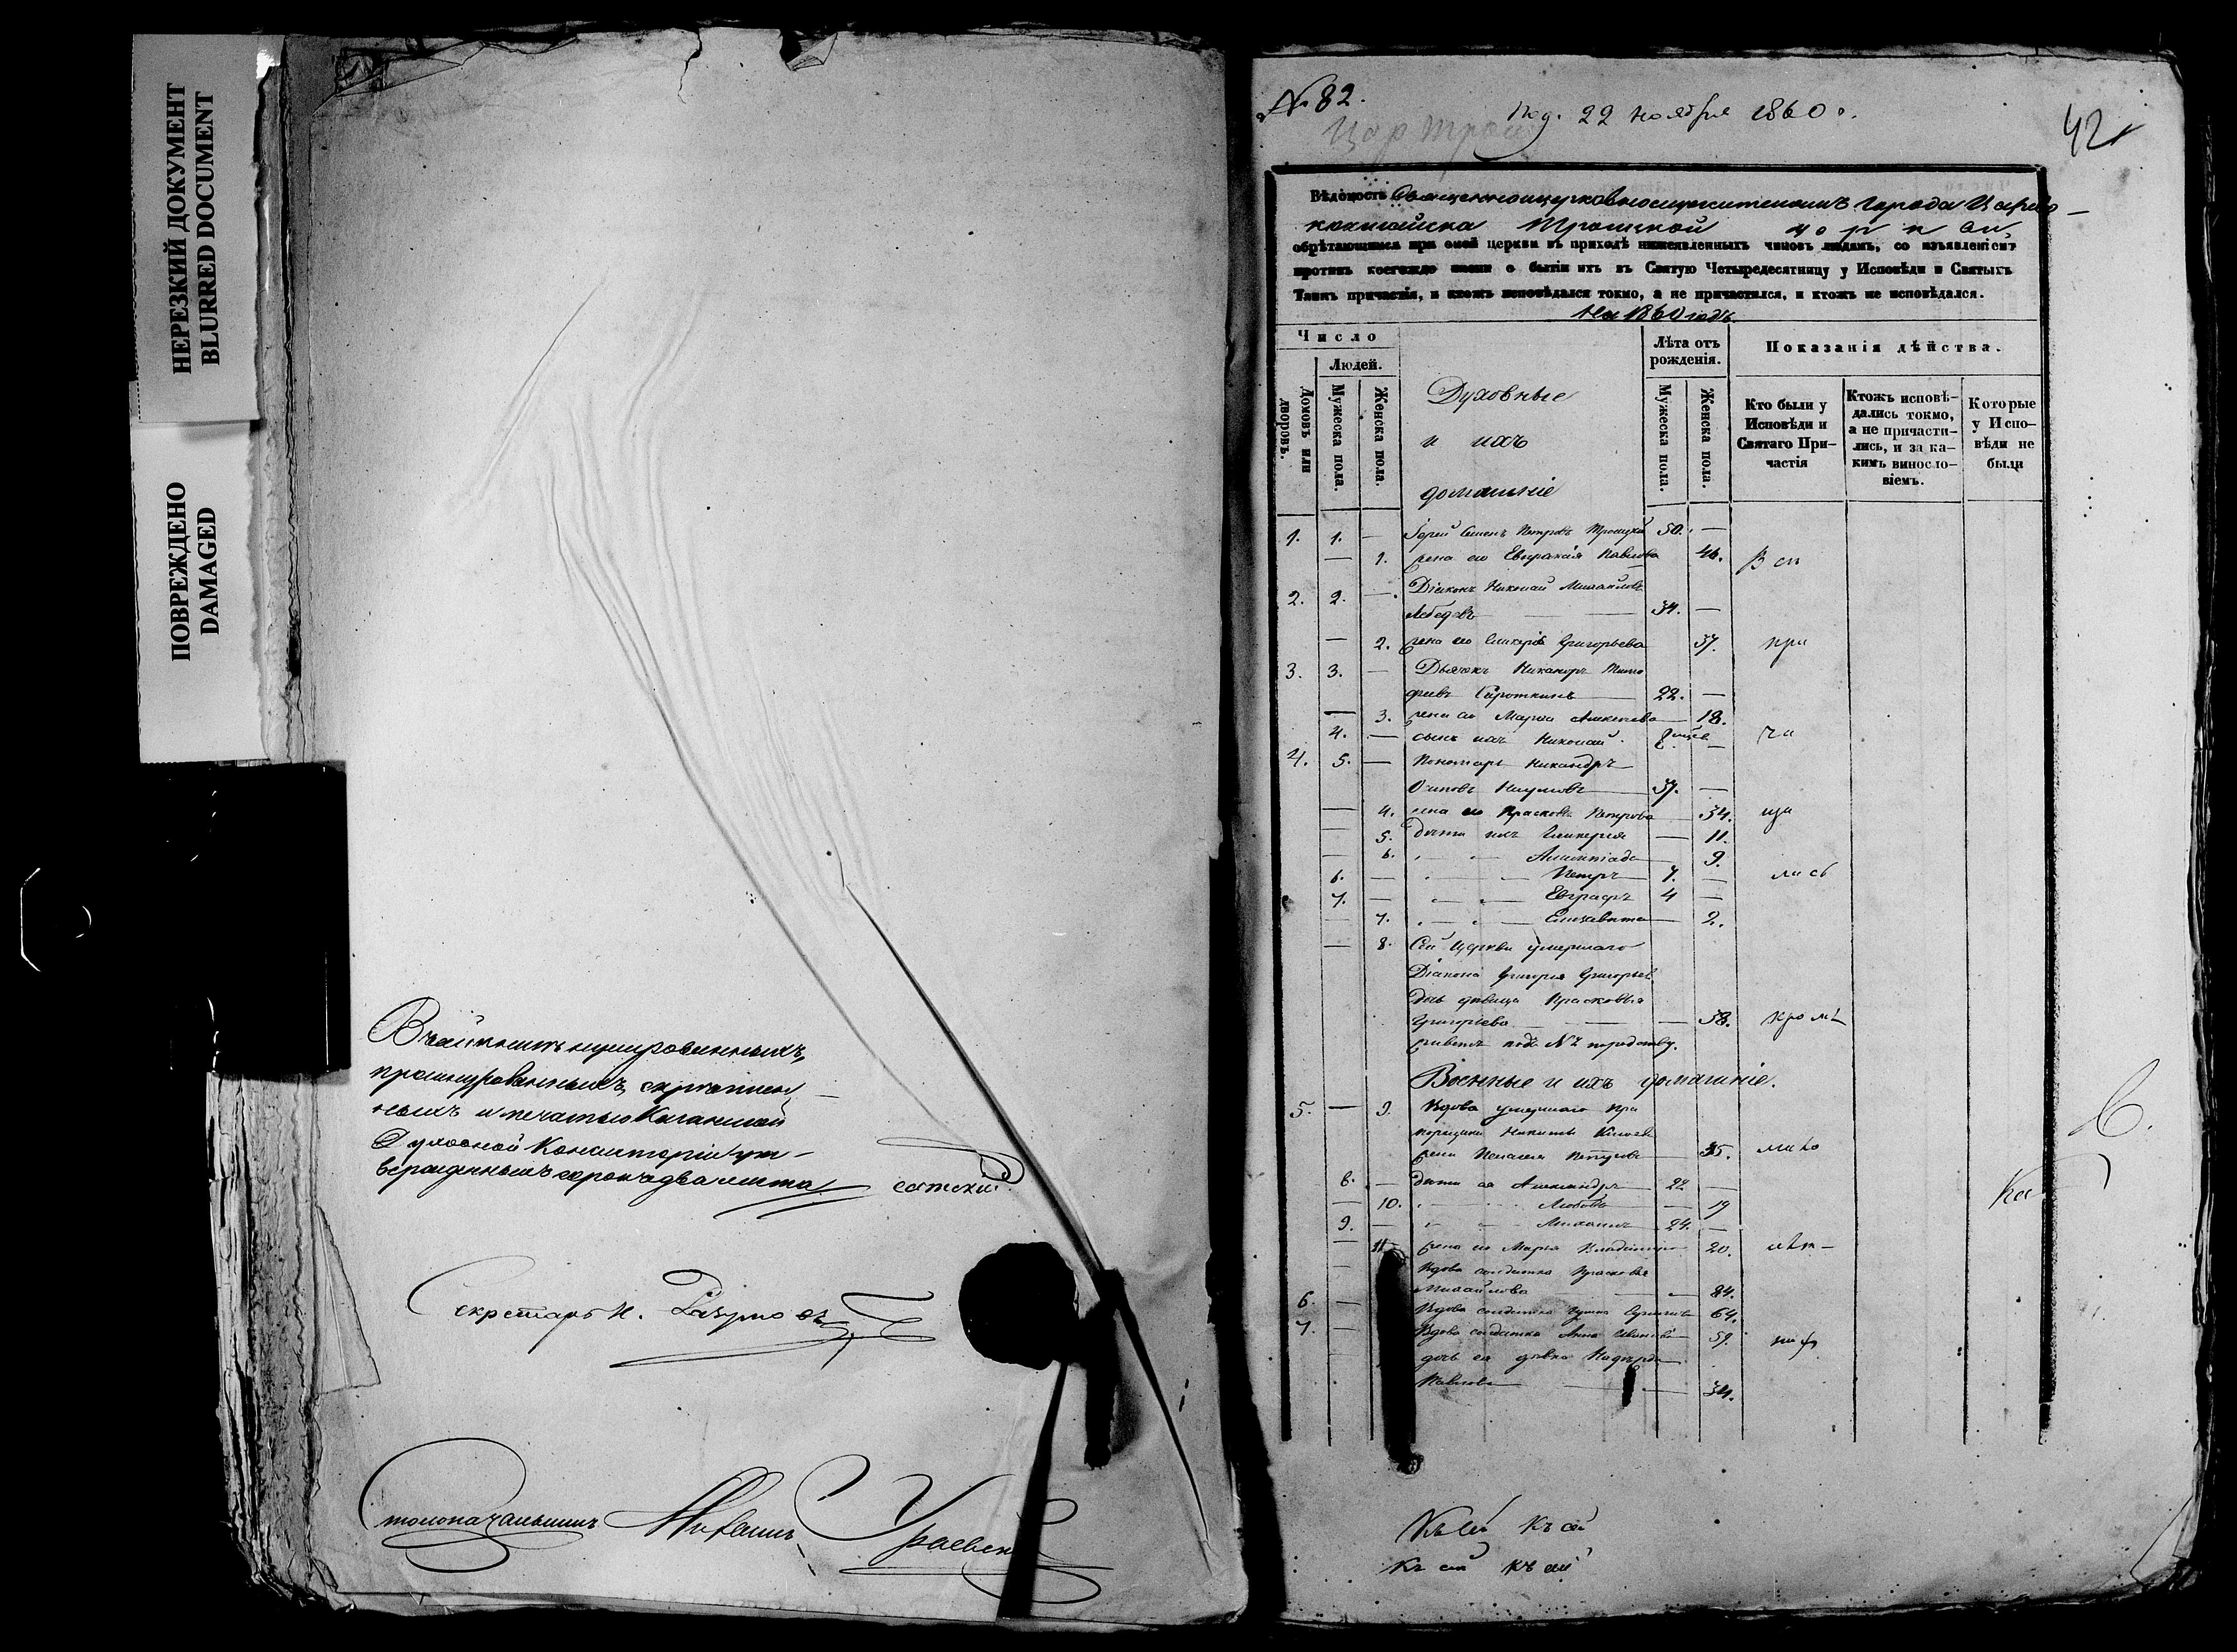 НЕРЕЗКИЙ ДОКУМЕНТ
BLURRED DOCUMENT
ПОВРЕЖДЕНО
DAMAGED
нумерованныхъ,
прошнурованныхъ, скрѣплен-
ныхъ и печатью Казанской
Духовной Консисторіи ут-
вержденныхъ сорокъ два листа
Секретарь И. Разумовъ
Столоначальникъ Михаилъ
№ 82.
Под. 22 ноября 1860 г.
Цар Троиц
42
Вѣдомость Священноцерковнослужителей города Царево-
кокшайска Троицкой церкви
обрѣтающимся при оной церкви въ приходѣ нижеявленныхъ чиновъ людямъ, со изъявленіемъ
противъ коегождо имени о бытіи ихъ въ Святую Четыредесятницу у Исповѣди и Святыхъ
Таинъ причастія, и ктожъ исповѣдался токмо, а не причастился, и ктожъ не исповѣдался.
На 1860 годъ
Число
Людей.
Домовъ или дворовъ.
Мужеска пола.
Женска пола.
Духовные
и ихъ
домашніе
Лѣта отъ рожденія.
Мужеска пола.
Женска пола.
Показанія дѣйства.
Кто были у Исповѣди и Святаго Причастія
Ктожъ исповѣдались токмо, а не причастились, и за какимъ винословіемъ.
Которые у Исповѣди не были
1. 1. — Іерей Семенъ Петровъ Троицкій 50. —
— 1. жена его Евпраксія Павлова 46. Всѣ
2. 2. — Діаконъ Николай Михайловъ
Лебедевъ 34. —
— 2. жена его Гликерія Григорьева 37. при
3. 3. — Дьячокъ Никаноръ Тимо
феевъ Сироткинъ 22. —
— 3. жена его Марія Алексѣева 18.
4. — сынъ ихъ Николай — ча
4. 5. — Пономарь Никандръ
Осиповъ Наумовъ 37. —
— 4. жена его Прасковья Петрова 34. ща
— 5. дѣти ихъ Гликерія — 11.
— 6. 9.
6. — Петръ 7. — лись
7. — Евграфъ 4 —
— 7. Елизавета — 2.
— 8. Сей церкви умершаго
Діакона Григорія Григорьев
дочь дѣвица Прасковья
Григорьева — 58. кромѣ
живетъ подъ №
Военные и ихъ домашніе.
5. — 9. Вдова умершаго пра
порщика Никиты
жена Пелагея 55. мало
8. — дѣти ея Александръ 22 —
— 10. Любовь — 19
9. — Михаилъ 24. —
— 11 жена его Марья Владимиро 20. лѣт-
— Вдова солдатка Прасковья
Михайлова — 84.
6. — Вдова солдатка 64.
7. — Вдова солдатка Анна Иванова 59. ныхъ
дочь ея дѣвка Надежда
Павлова — 34.
Къ сей Къ сей
Къ сей къ сей